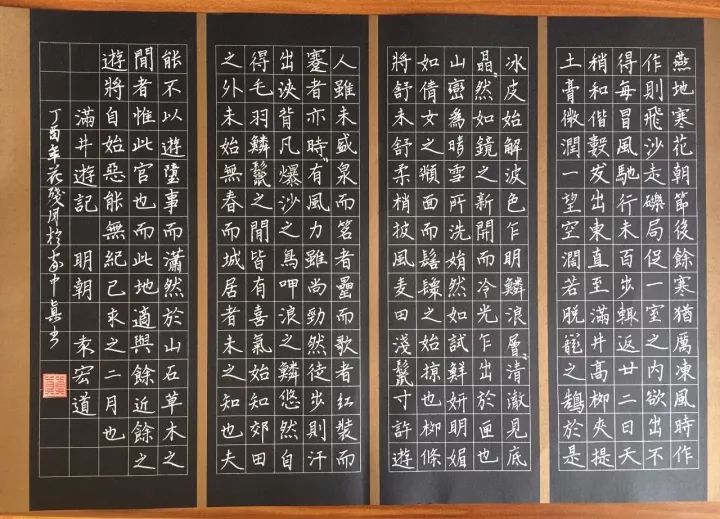 燕地寒花朝節後餘寒猶厲凍風時作
作則飛沙走礫局促一室之內欲出不
得每冒風馳行未百步輒返廿二日天
稍和偕數友出東直至滿井高柳夾提
土膏微潤一望空闊若脫籠之鵠於是
冰皮始解波色乍明鱗浪層〻清澈見底
晶〻然如鏡之新開而冷光乍出於匣也
山巒為晴雪所洗娟然如試鮮妍明媚
如倩女之靧面而髻鬟之始掠也柳條
將舒未舒柔梢披風麥田淺鬣寸許遊
人雖未盛泉而茗者罍而歌者紅裝而
蹇者亦時〻有風力雖尚勁然徒步則汗
出浹背凡爆沙之鳥呷浪之鱗悠然自
得毛羽鱗鬣之間皆有喜氣始知郊田
之外未始無春而城居者未之知也夫
能不以遊墮事而瀟然於山石草木之
間者惟此官也而此地適與餘近餘之
遊將自始惡能無紀己亥之二月也
滿井遊記 明朝 袁宏道
丁酉年花殘月於家中真書